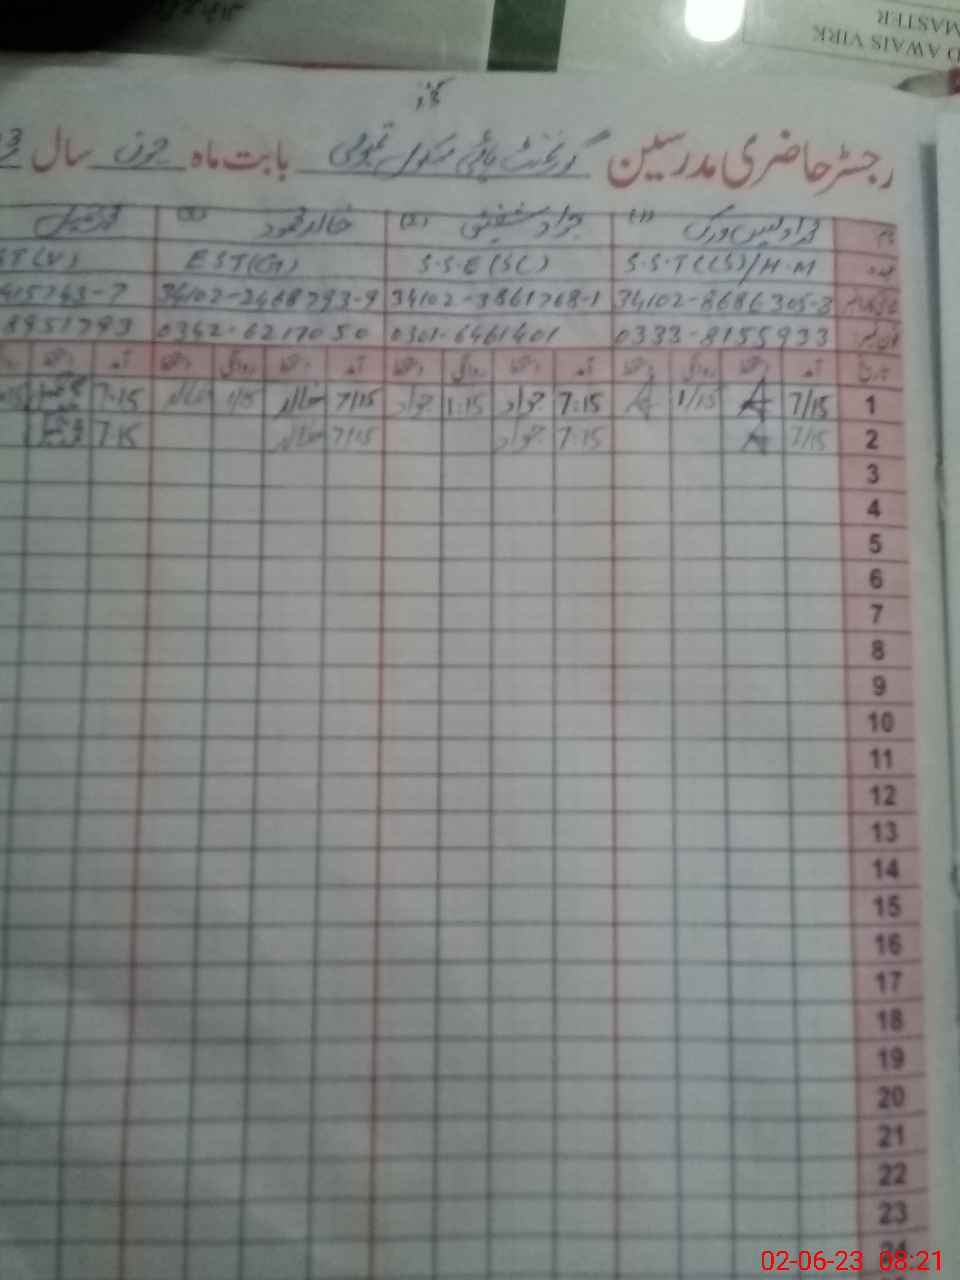 MASTER
D AWAIS VIRK
رجسٹر حاضری مدرسین گورنمنٹ ہائی سکول بابت ماہ جون سال
نام (1) محمد اویس ورک (2) جواد شفیع (3) خالد محمود
عہدہ S.S.T(CS)/H.M S.S.E(SC) EST(G) ST(V)
34102-8686305-3 34102-3861768-1 34102-2468793-9 415743-7
0333-8155933 0301-6461401 0342-6217050 8951793
تاریخ آمد دستخط روانگی دستخط آمد دستخط روانگی دستخط آمد دستخط روانگی دستخط آمد دستخط
1 7/15 1/15 7:15 جواد 1:15 جواد 7/15 خالد 1/15 خالد 7:15
2 7/15 7:15 جواد 7/15 خالد 7:15
3
4
5
6
7
8
9
10
11
12
13
14
15
16
17
18
19
20
21
22
23
24
02-06-23 08:21